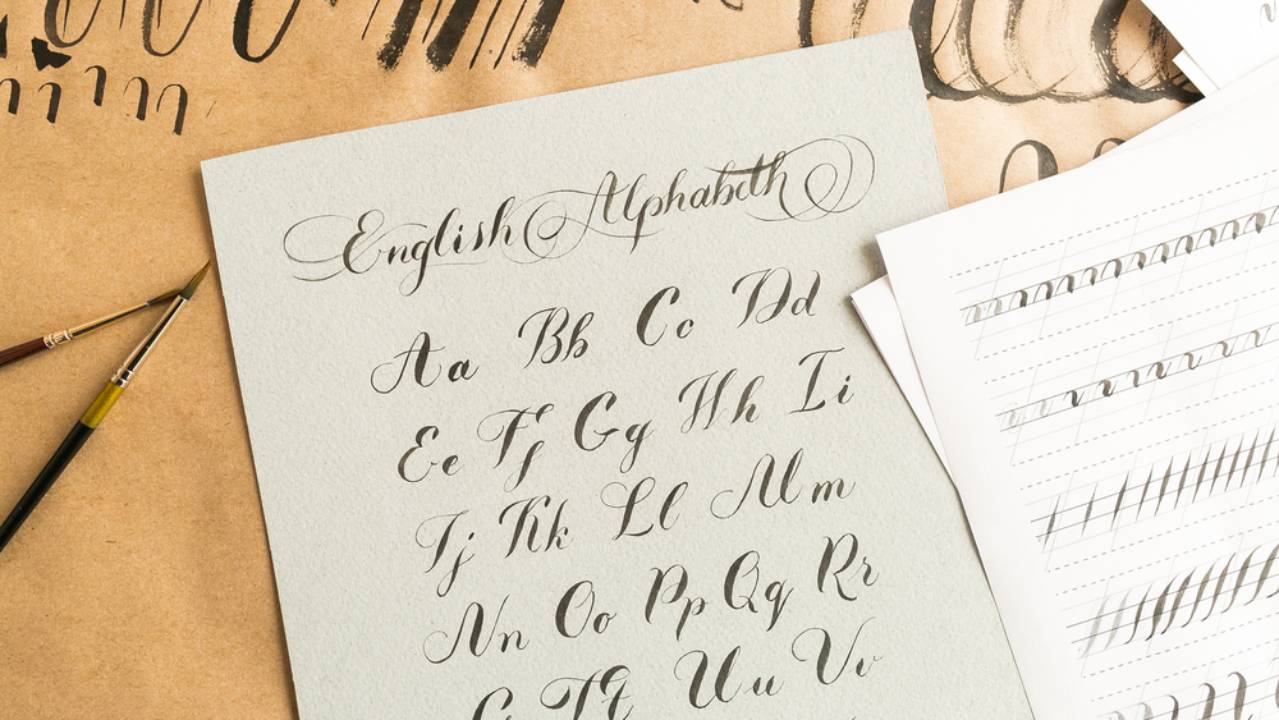 English Alphabeth
Aa Bb Cc Dd
Ee Ff Gg Hh Ii
Jj Kk Ll Mm
Nn Oo Pp Qq Rr
Tt Uu Vv